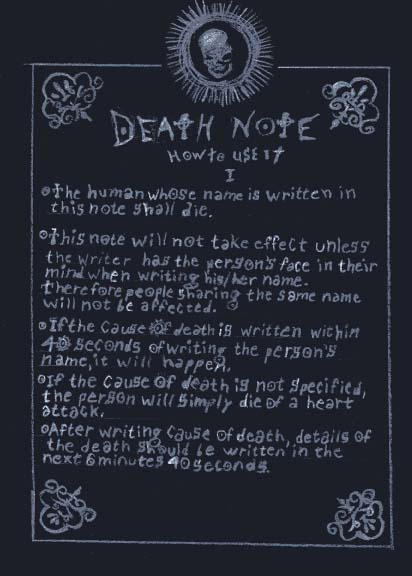 DEATH NOTE
How to use it
I
The human whose name is written in
this note shall die.
This note will not take effect unless
the writer has the person's face in their
mind when writing his/her name.
Therefore people sharing the same name
will not be affected.
If the cause of death is written within
40 seconds of writing the person's
name, it will happen.
If the cause of death is not specified,
the person will simply die of a heart
attack.
After writing cause of death, details of
the death should be written in the
next 6 minutes 40 seconds.